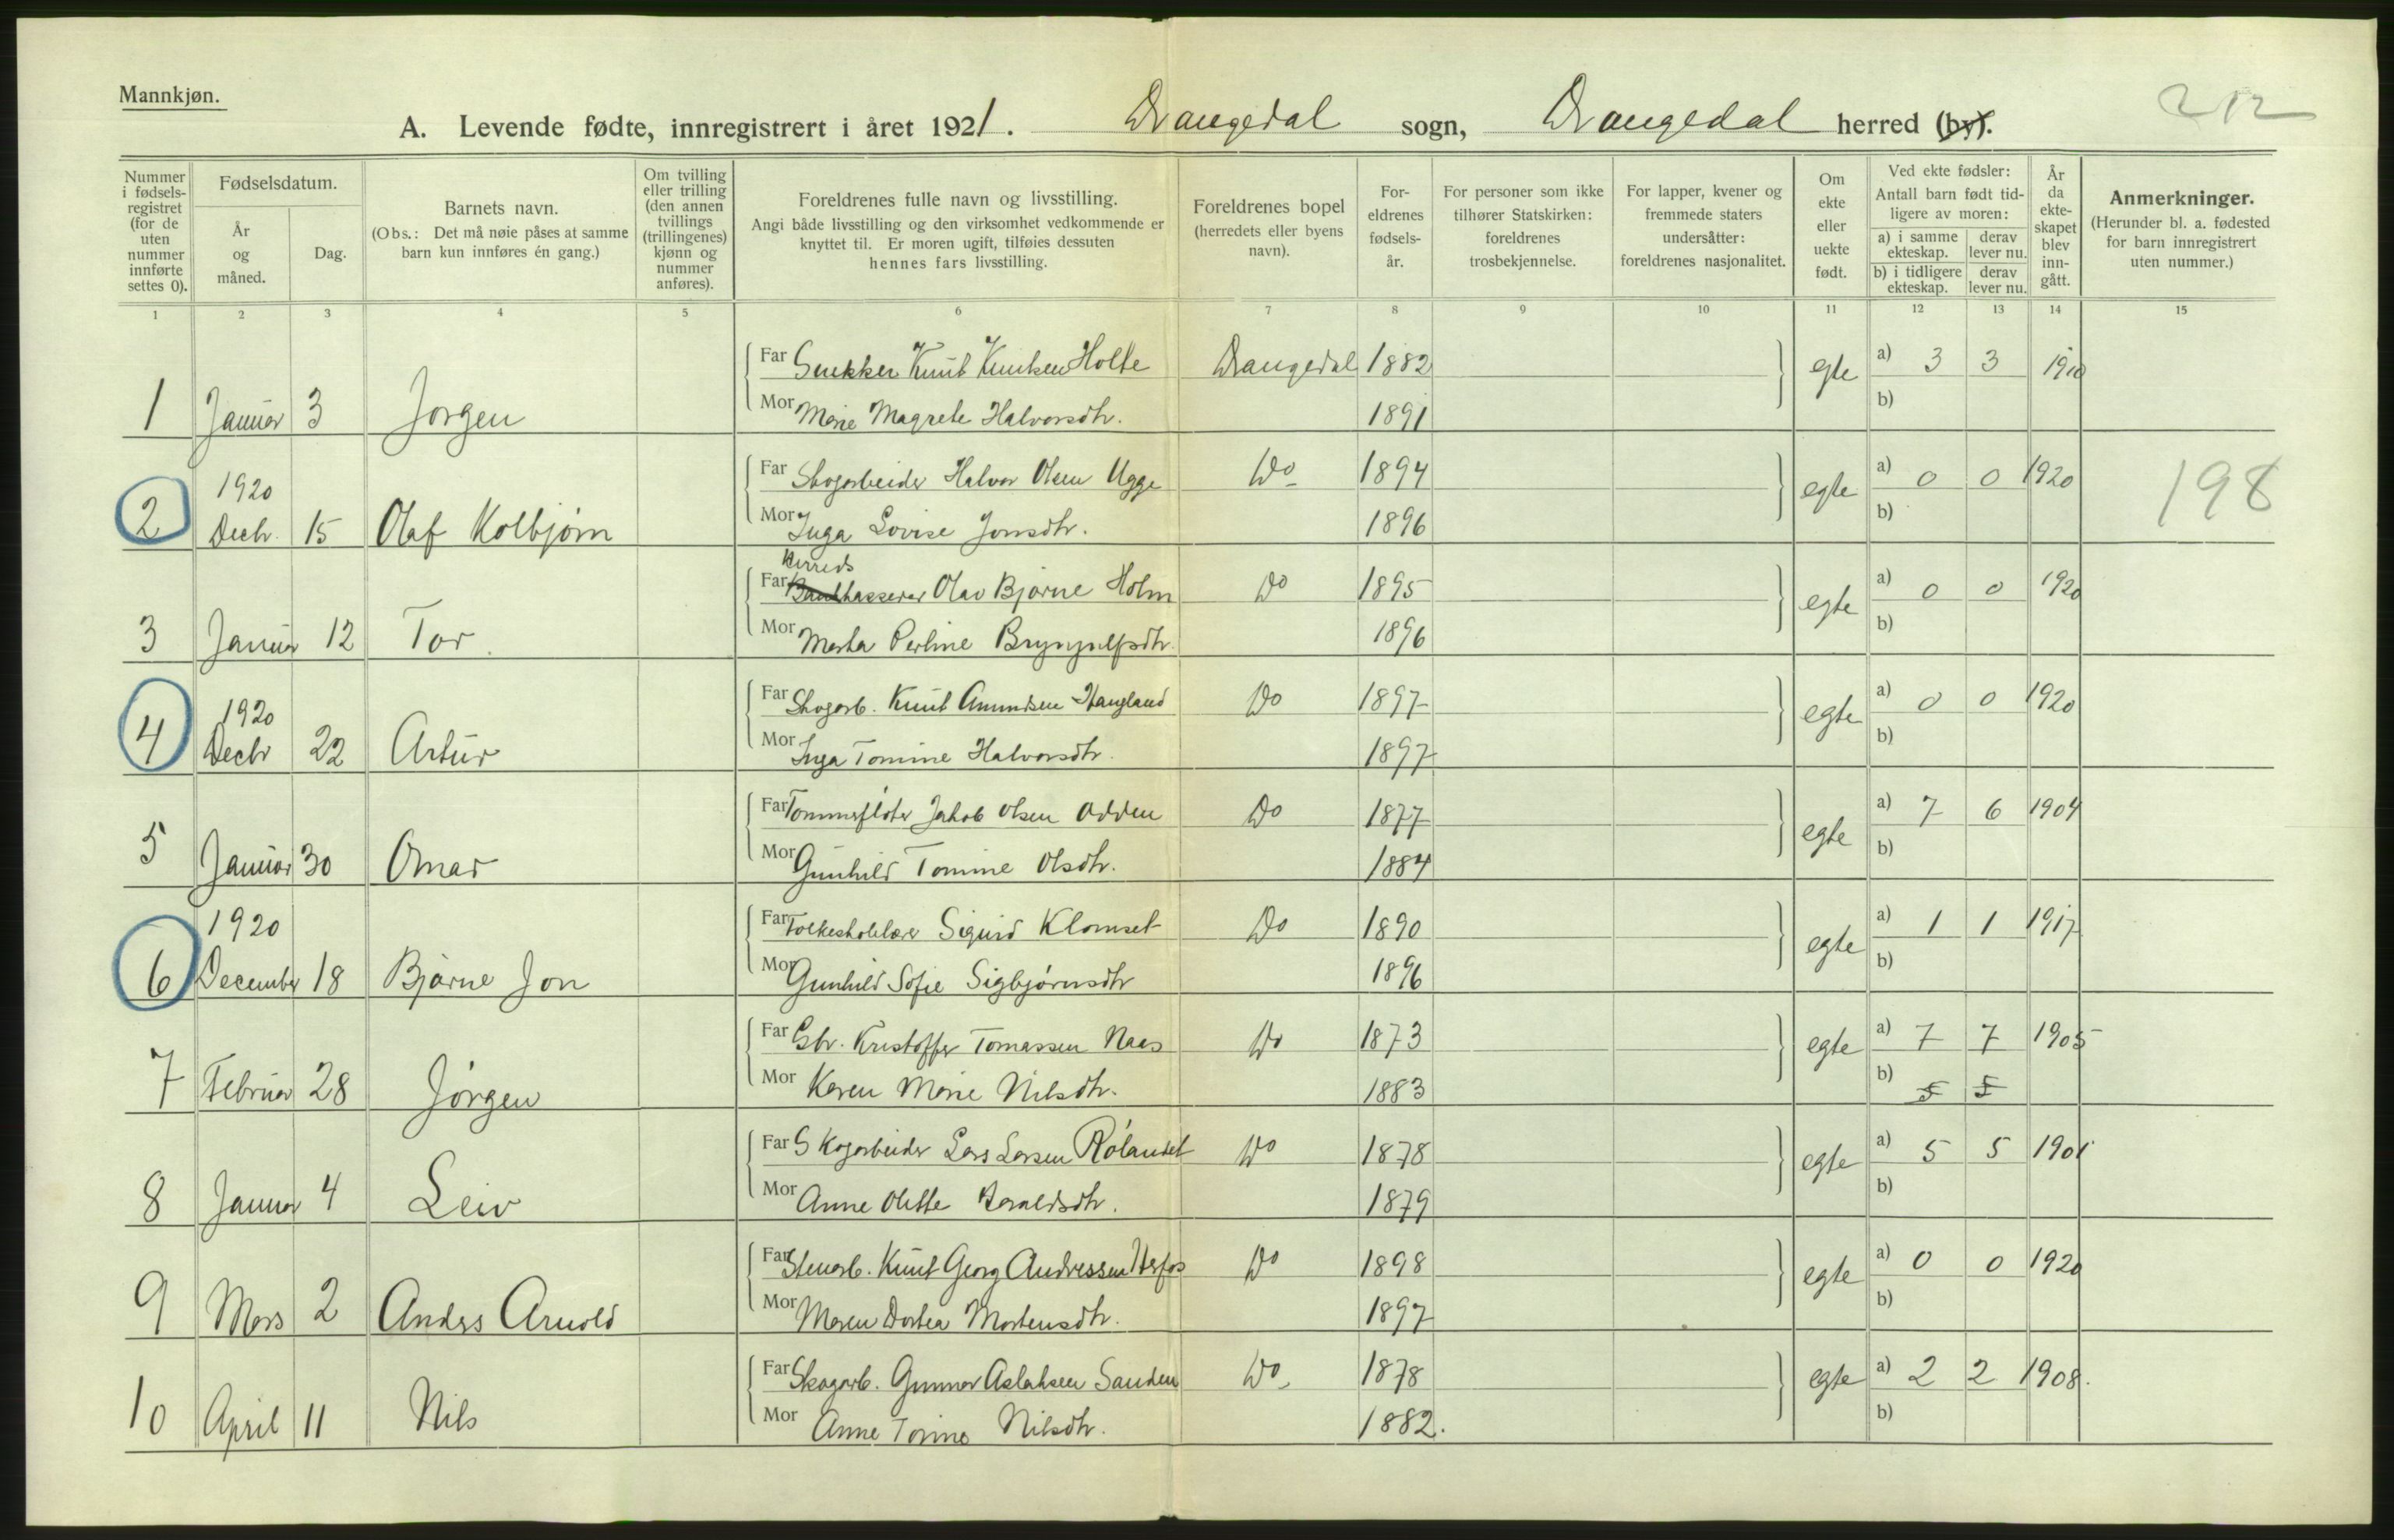 Mannkjøn.
212
A. Levende fødte, innregistrert i året 1921. Drangedal sogn, Drangedal herred (by).
Nummer i fødselsregistret (for de uten nummer innførte settes 0).
Fødselsdatum.
År og måned.
Dag.
Barnets navn.
(Obs.: Det må nøie påses at samme barn kun innføres én gang.)
Om tvilling eller trilling (den annen tvillings (trillingenes) kjønn og nummer anføres).
Foreldrenes fulle navn og livsstilling.
Angi både livsstilling og den virksomhet vedkommende er knyttet til. Er moren ugift, tilføies dessuten hennes fars livsstilling.
Foreldrenes bopel (herredets eller byens navn).
Foreldrenes fødselsår.
For personer som ikke tilhører Statskirken: foreldrenes trosbekjennelse.
For lapper, kvener og fremmede staters undersåtter: foreldrenes nasjonalitet.
Om ekte eller uekte født.
Ved ekte fødsler:
Antall barn født tidligere av moren:
a) i samme ekteskap.
derav lever nu.
b) i tidligere ekteskap.
derav lever nu.
År da ekteskapet blev inngått.
Anmerkninger.
(Herunder bl. a. fødested for barn innregistrert uten nummer.)
1 2 3 4 5 6 7 8 9 10 11 12 13 14 15
Far Snekker Knut Knutsen Holte Drangedal 1882 egte a) 3 3 1910
1 Januar 3 Jørgen Mor Marie Magrete Halvorsdtr. 1891 b)
1920 Far Skogarbeider Halvor Olsen Ugge Do 1894 egte a) 0 0 1920 198
2 Decbr. 15 Olaf Kolbjørn Mor Inga Lovise Jonsdtr. 1896 b)
Herreds
Far kasserer Olav Bjarne Holm Do 1895 egte a) 0 0 1920
3 Januar 12 Tor. Mor Marta Perline Brynjulfsdtr. 1896 b)
1920 Far Skogarb. Knut Amundsen Haugland Do 1897 egte a) 0 0 1920
4 Decbr 22 Artur Mor Inga Tomine Halvorsdtr. 1897 b)
Far Tømmerfløter Jakob Olsen Odden Do 1877 egte a) 7 6 1904
5 Januar 30 Omar Mor Gunhild Tomine Olsdtr. 1884 b)
1920 Far Folkeskolelærer Sigurd Klomset Do 1890 egte a) 1 1 1917
6 December 18 Bjarne Jon Mor Gunhild Sofie Sigbjørnsdtr 1896 b)
Far Gbr. Kristoffer Tomassen Naas Do 1873 egte a) 7 7 1905
7 Februar 28 Jörgen Mor Karen Marie Nilsdtr. 1883 b) 5 5
Far Skogarbeider Lars Larsen Rölandet Do 1878 egte a) 5 5 1901
8 Januar 4 Leiv Mor Anne Olette Haraldsdtr. 1879 b)
Far Stenarb. Knut Georg Andressen Herfos Do 1898 egte a) 0 0 1920
9 Mars 2 Anders Arnold Mor Maren Dortea Mortensdtr. 1897 b)
Far Skogarb. Gunnar Aslaksen Sanden Do 1878 egte a) 2 2 1908.
10 April 11 Nils Mor Anne Torine Nilsdtr. 1882. b)